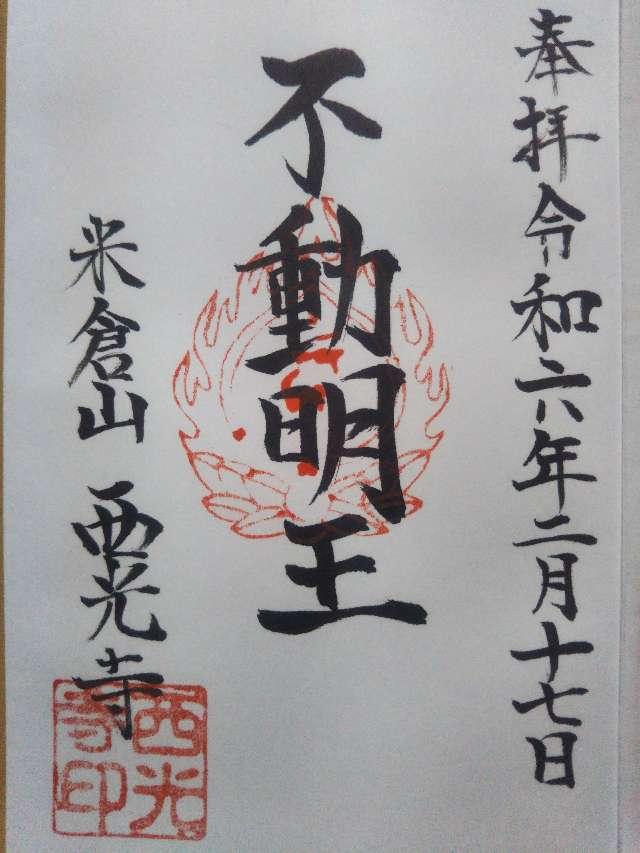 奉拝令和六年二月十七日
不動明王
米倉山 西光寺
西光
寺印